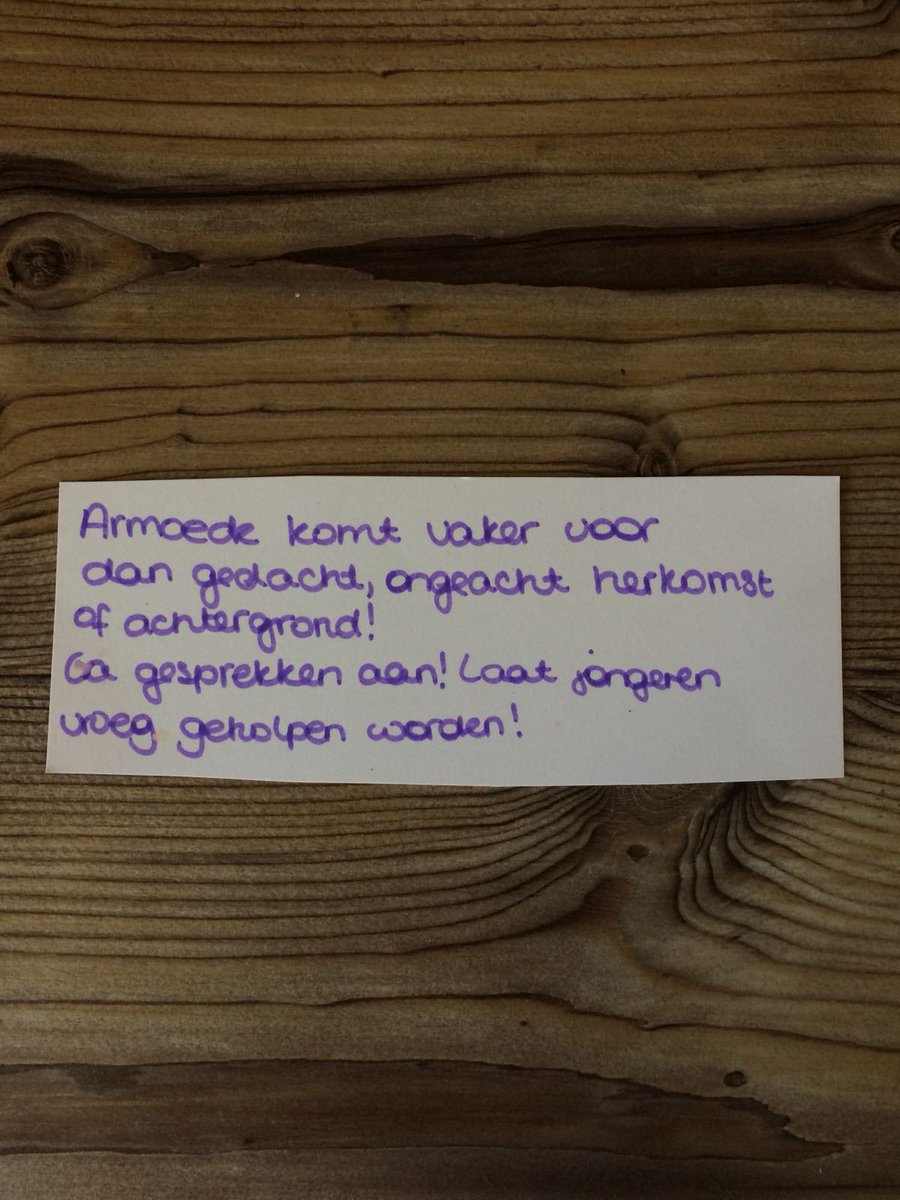 Armoede komt vaker voor
dan gedacht, ongeacht herkomst
of achtergrond!
Ga gesprekken aan! Laat jongeren
vroeg geholpen worden!